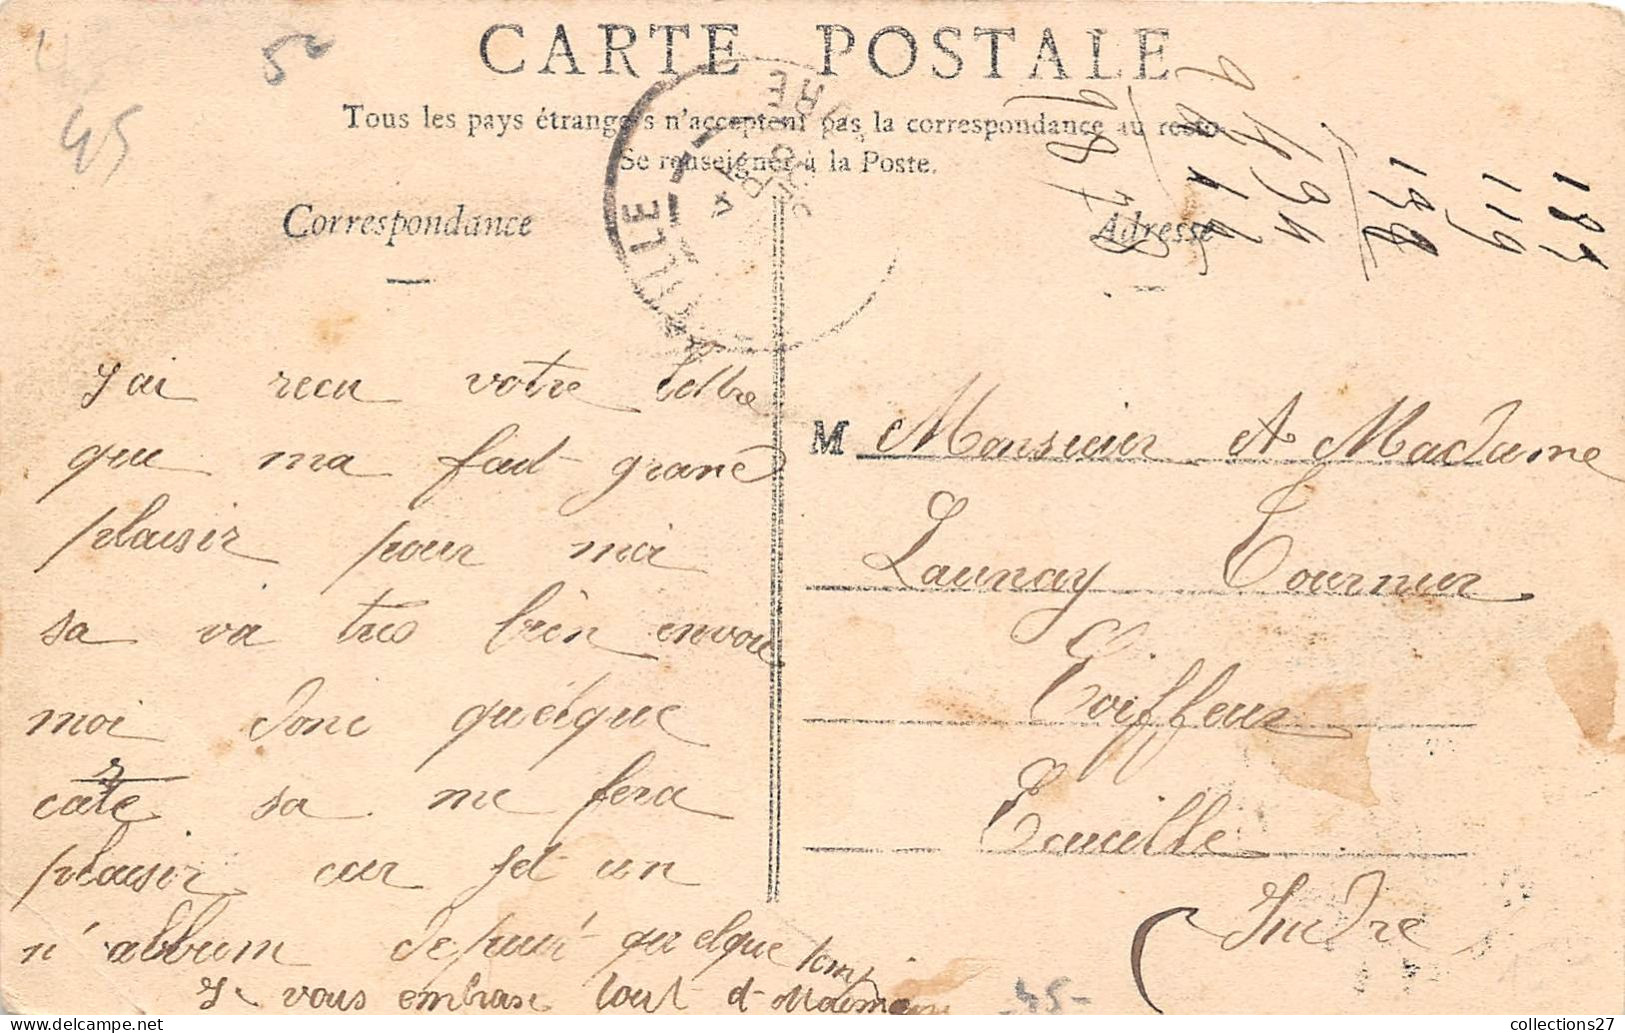 CARTE POSTALE
Tous les pays étrangers n'acceptent pas la correspondance au recto
Se renseigner à la Poste.
Correspondance
Adresse
45
187
119
198
J'ai recu votre lettre
que ma fait grand
plaisir pour moi
sa va tres bien envoie
moi donc quelque
carte sa me fera
plaisir car set un
n'album depuis quelque temp
Je vous embrase tout
M Monsieur et Madame
Launay Tournier
Coiffeur
Ecueillé
Indre
45-
collections27